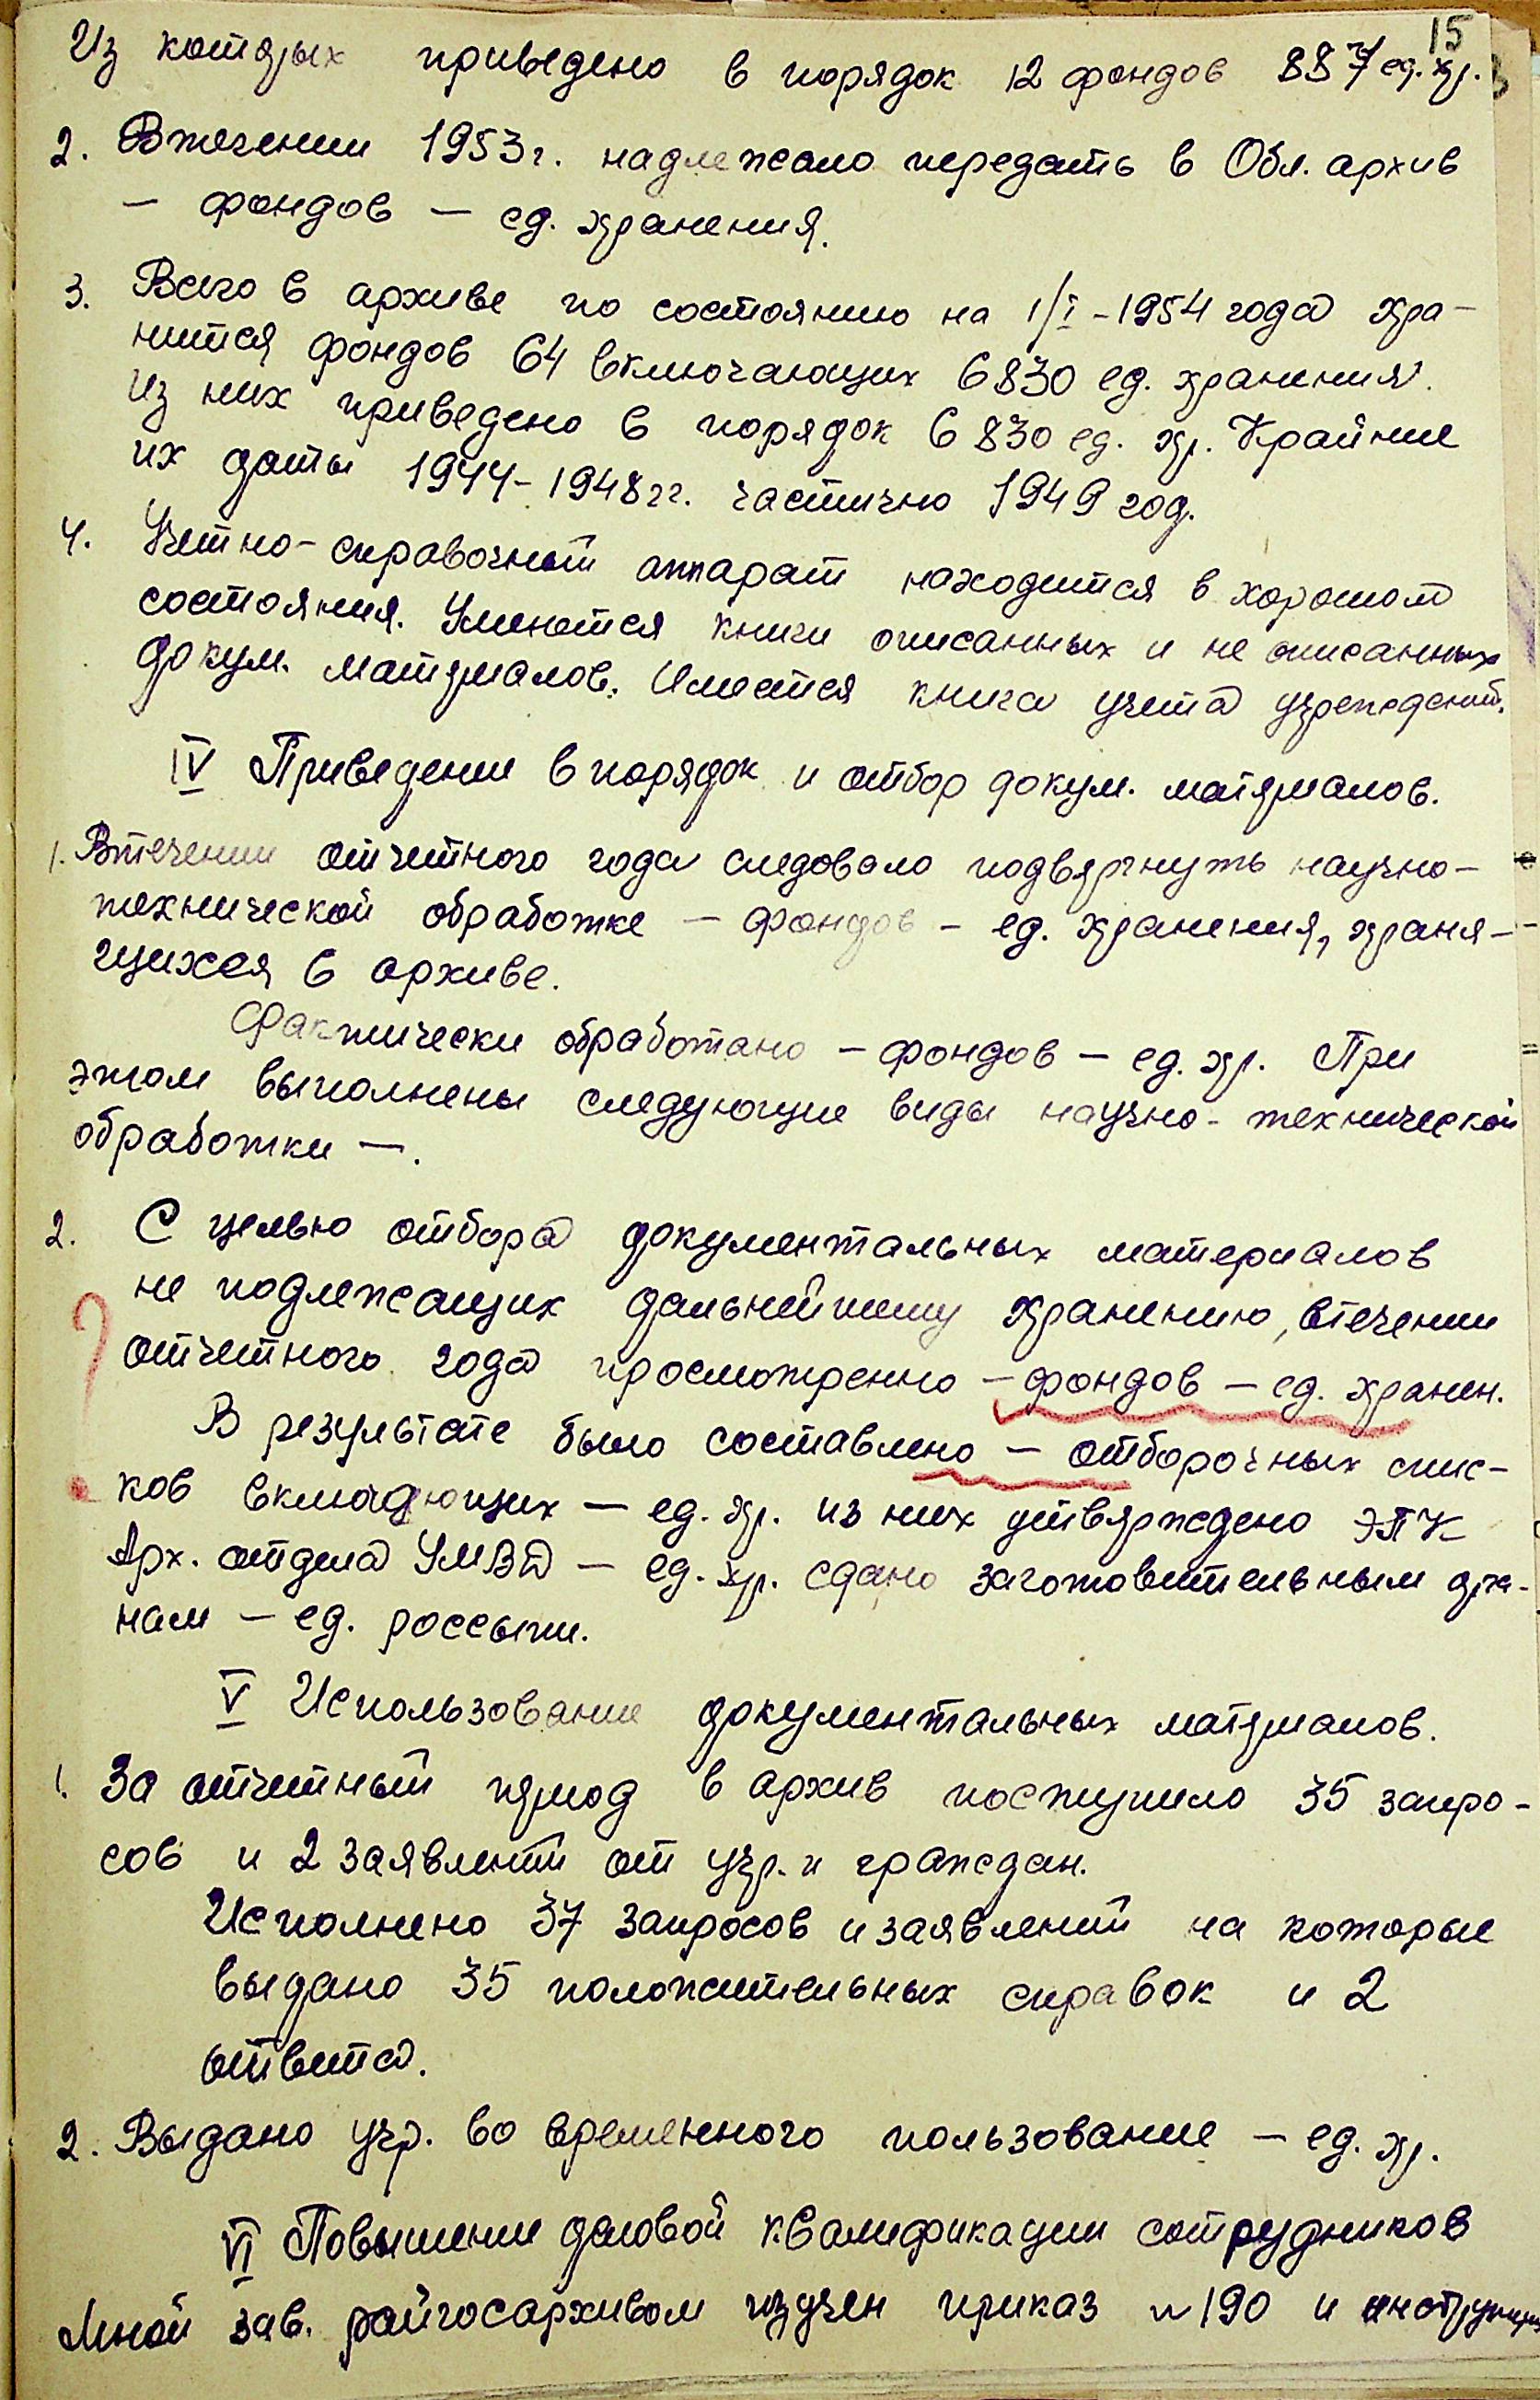 15
Из которых приведено в порядок 12 фондов 887 ед. хр.
2. Втечении 1953 г. надлежало передать в Обл. архив
— фондов — ед. хранения.
3. Всего в архиве по состоянию на 1/I - 1954 года хра-
нится фондов 64 включающих 6830 ед. хранения.
Из них приведено в порядок 6830 ед. хр. Крайние
их даты 1944-1948 гг. частично 1949 год.
4. Учетно-справочный аппарат находится в хорошом
состояния. Имеются книги описанных и не описанных
докум. материалов. Имеется книга учета учреждений.
IV Приведение в порядок и отбор докум. материалов.
1. Втечении отчетного года следовало подвергнуть научно-
технической обработке — фондов — ед. хранения, храня-
щихся в архиве.
Фактически обработано — фондов — ед. хр. При
этом выполнены следующие виды научно-технической
обработки —.
2. С целью отбора документальных материалов
не подлежащих дальнейшему хранению, втечении
отчетного года просмотренно — фондов — ед. хранен.
В результате было составлено — отборочных спис-
ков включающих — ед. хр. из них утверждено ЭПК
Арх. отдела УМВД — ед. хр. сдано заготовительным орга-
нам — ед. россыпи.
V Использование документальных материалов.
1. За отчетный период в архив поступило 35 запро-
сов и 2 заявлений от учр. и граждан.
Исполнено 37 запросов и заявлений на которые
выдано 35 положительных справок и 2
ответа.
2. Выдано учр. во временного пользование — ед. хр.
VI Повышение деловой квалификации сотрудников
Мной зав. райгосархивом изучен приказ № 190 и инструкция